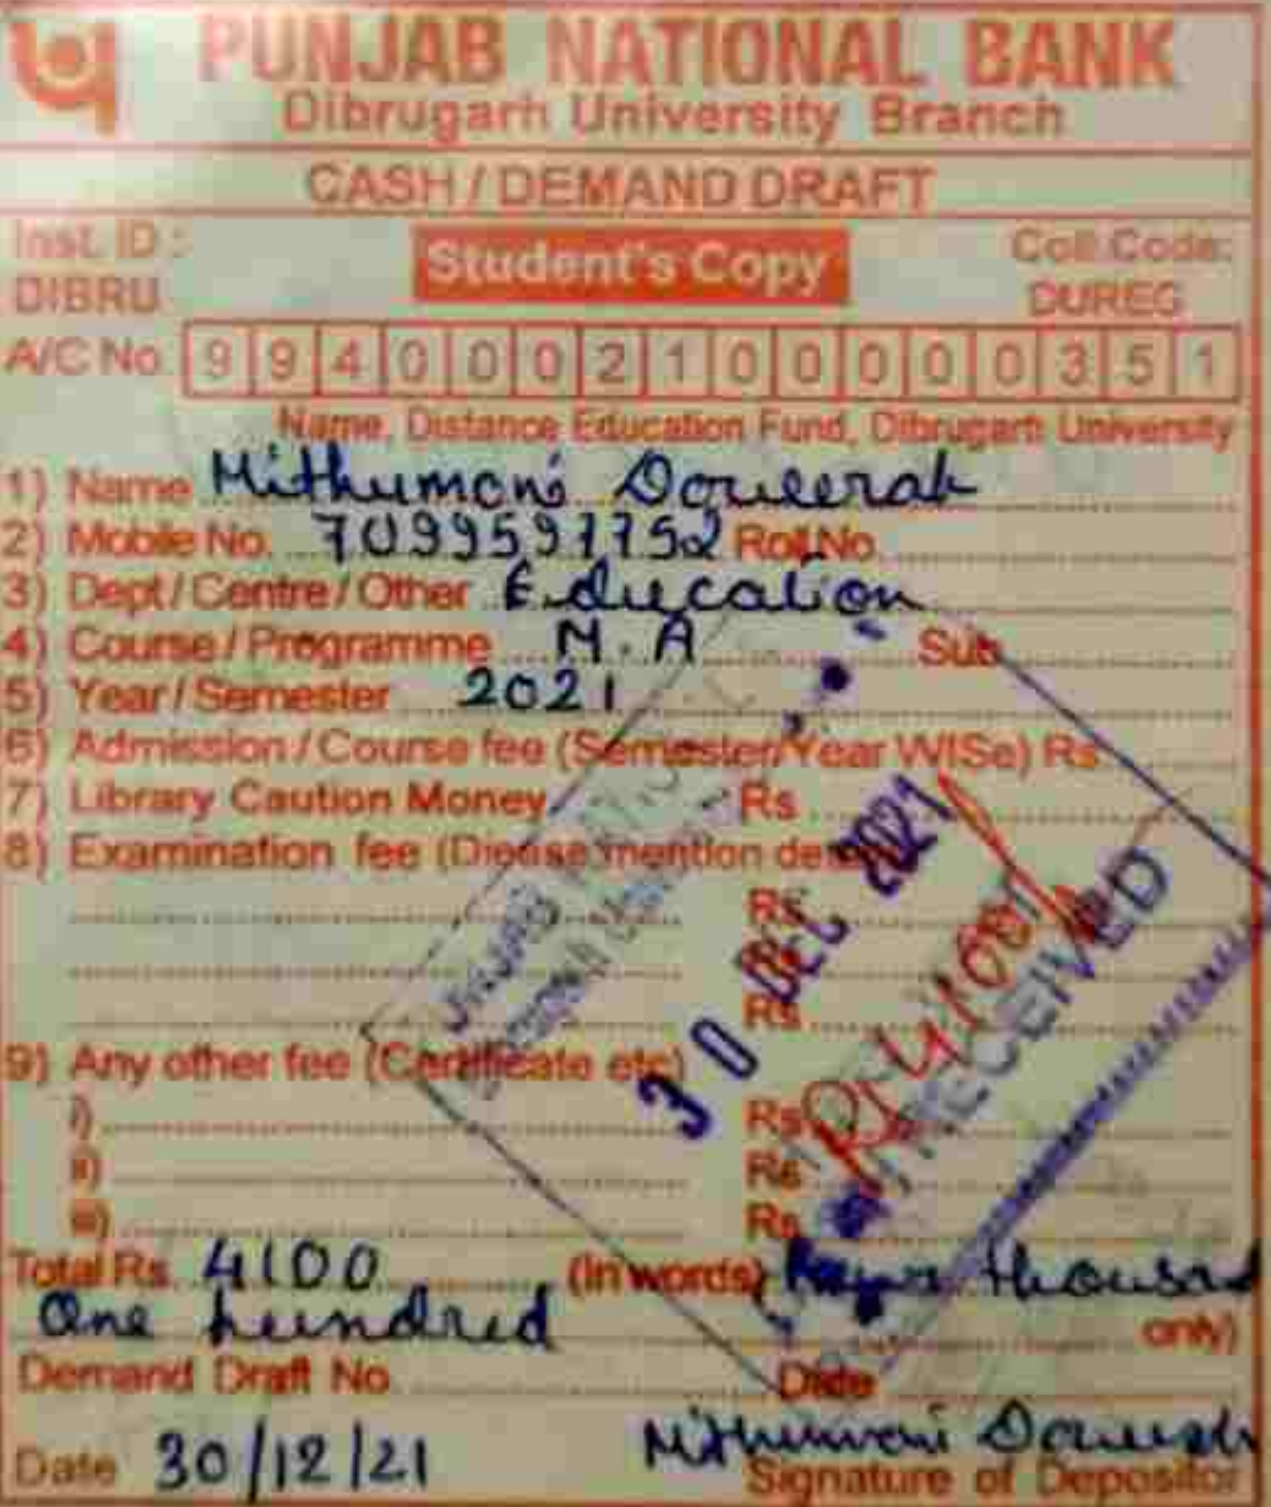 PUNJAB NATIONAL BANK
Dibrugarh University Branch
CASH / DEMAND DRAFT
Inst. ID :
DIBRU
Student's Copy
Coll.Code:
DUREG
A/C No. 9 9 4 0 0 0 2 1 0 0 0 0 0 3 5 1
Name. Distance Education Fund, Dibrugarh University
1) Name Mithumoni
2) Mobile No. Roll No.
3) Dept / Centre / Other Education
4) Course / Programme M.A Sub
5) Year / Semester 2021
6) Admission / Course fee (Semester/Year WISe) Rs
7) Library Caution Money Rs
8) Examination fee ( mention
Rs
Rs
Rs
30 DEC 2021
RECEIVED
9) Any other fee (Certificate etc)
i) Rs
ii) Rs
iii) Rs
Total Rs. 4100 (In words) thousand
One hundred only)
Demand Draft No. Date
Date 30/12/21
Signature of Depositor